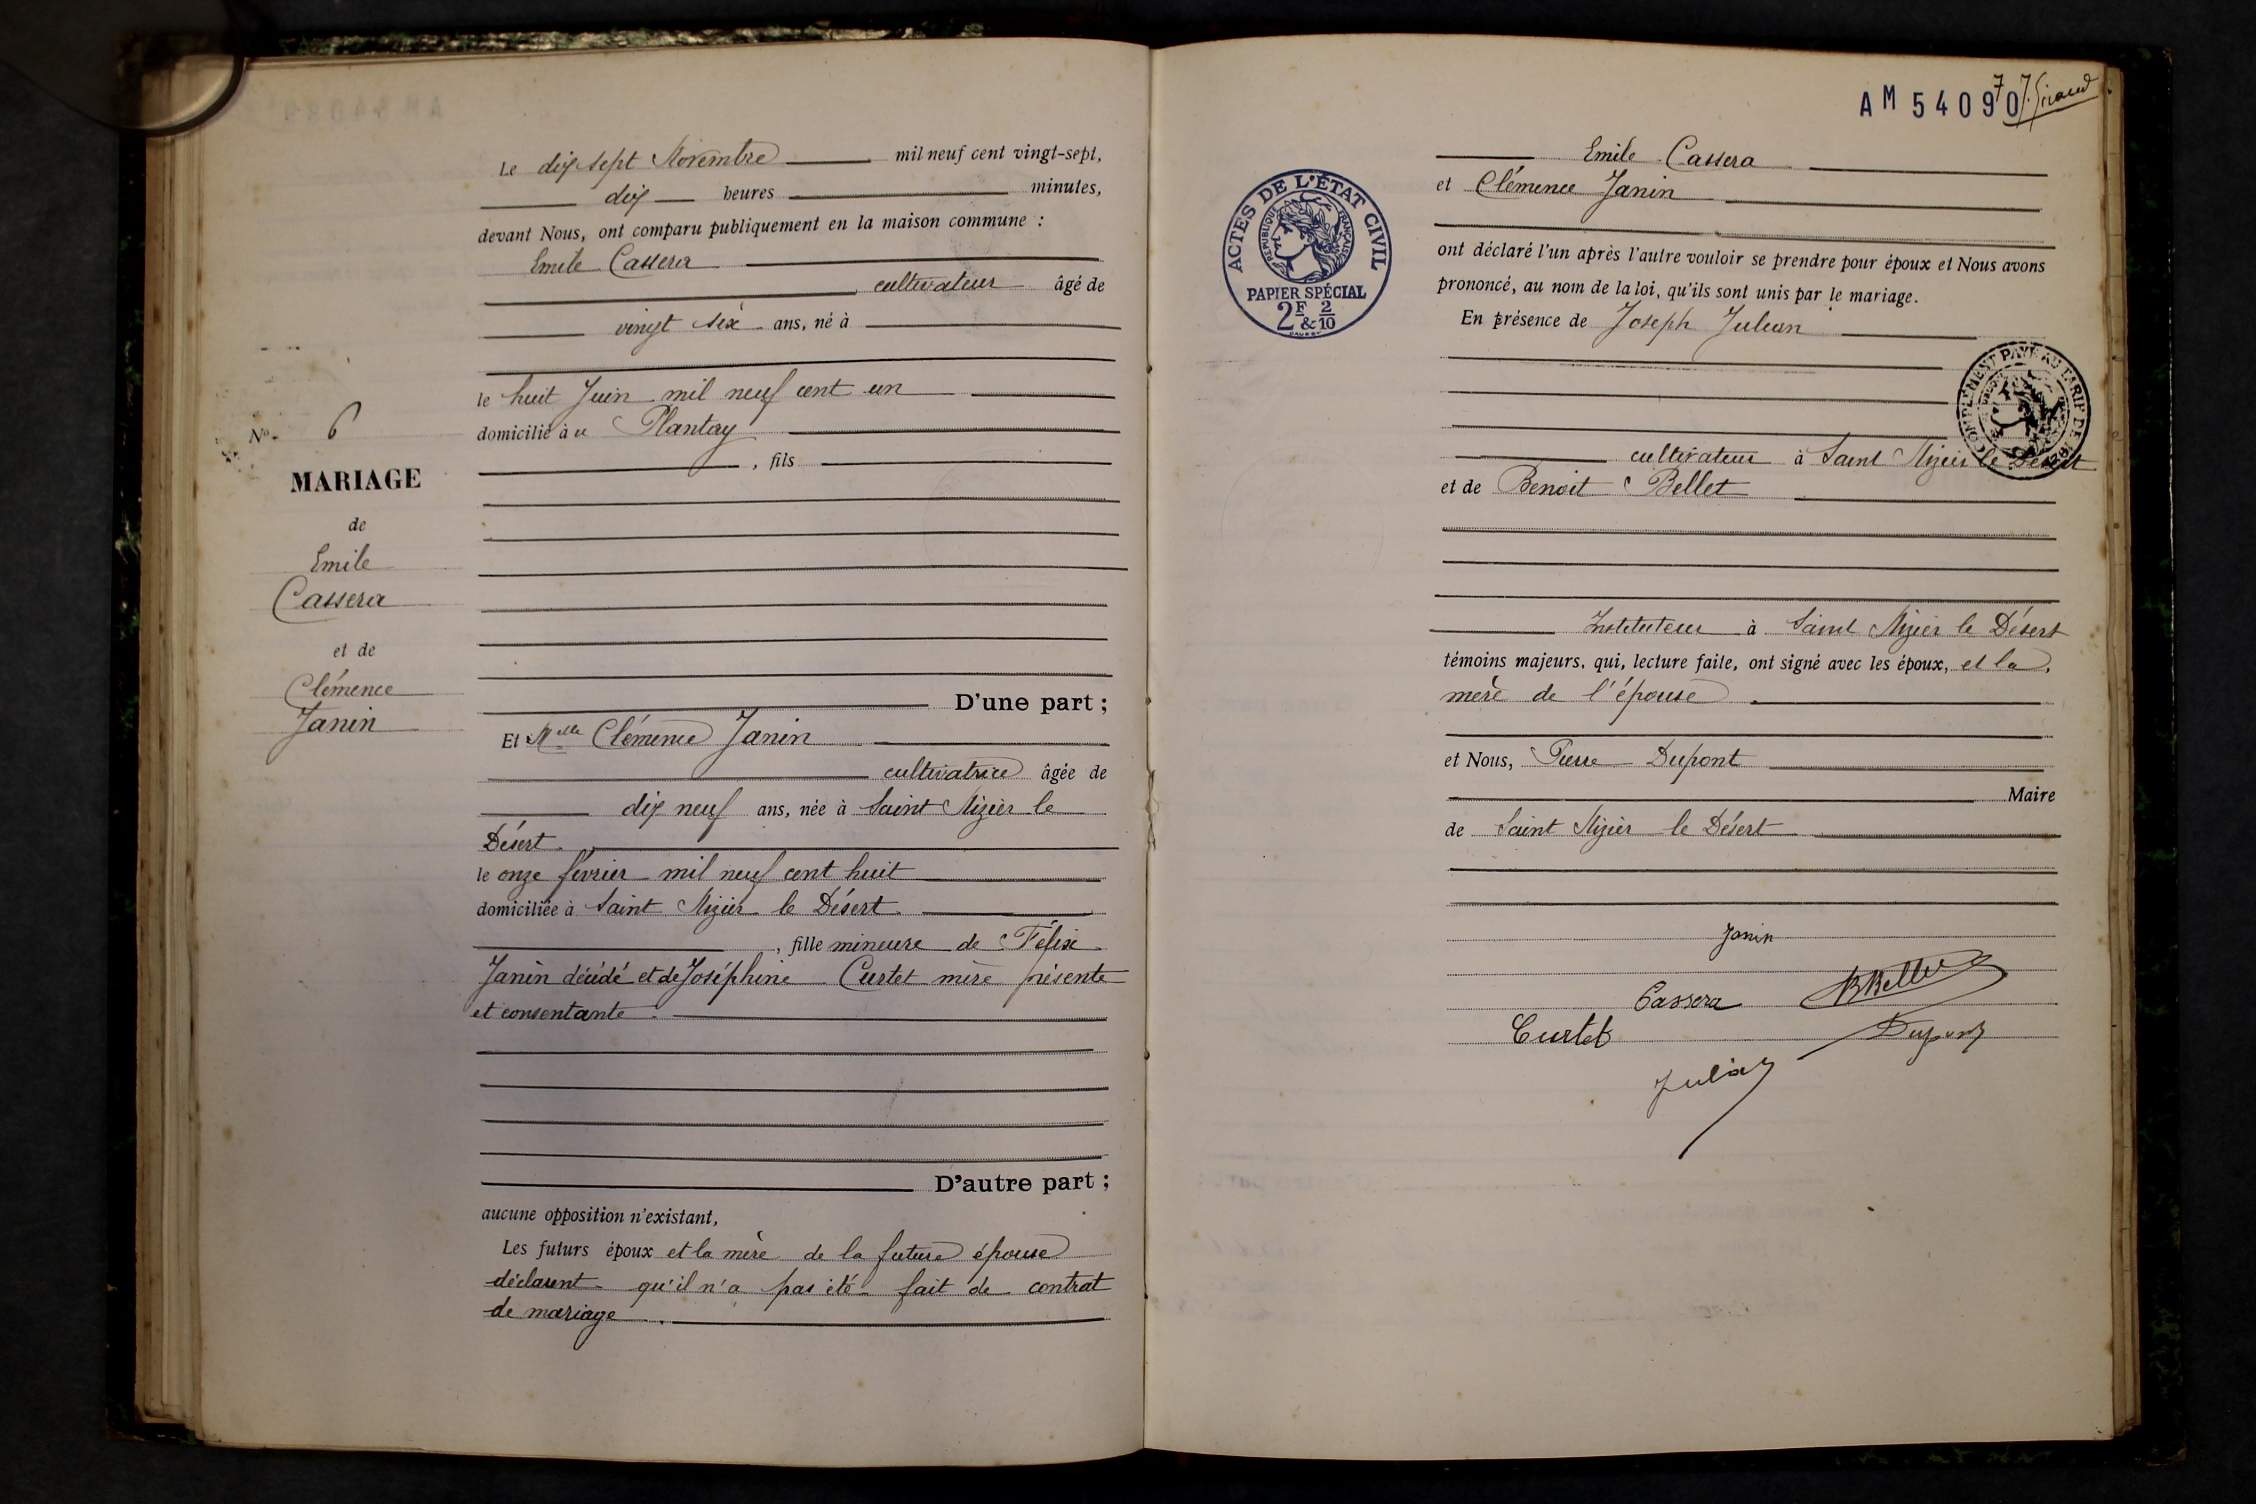 Le dix sept Novembre mil neuf cent vingt-sept,
dix heures minutes,
devant Nous, ont comparu publiquement en la maison commune :
Emile Cassera
cultivateur âgé de
vingt six ans, né à
le huit Juin mil neuf cent un
domicilié à u Plantay
, fils
No 6
MARIAGE
de
Emile
Cassera
et de
Clémence
Janin
D'une part ;
Et Melle Clémence Janin
cultivatrice âgée de
dix neuf ans, née à Saint Nizier le
Désert
le onze février mil neuf cent huit
domiciliée à Saint Nizier le Désert
, fille mineure de Félix
Janin décédé et de Joséphine Curtet mère présente
et consentante.
D'autre part ;
aucune opposition n'existant,
Les futurs époux et la mère de la future épouse
déclarent qu'il n'a pas été fait de contrat
de mariage.
AM 54090
7 J. Giraud
Emile Cassera
et Clémence Janin
ACTES DE L'ÉTAT CIVIL
RÉPUBLIQUE FRANÇAISE
PAPIER SPÉCIAL
2F & 2/10
ont déclaré l'un après l'autre vouloir se prendre pour époux et Nous avons
prononcé, au nom de la loi, qu'ils sont unis par le mariage.
En présence de Joseph Julian
COMPLÉMENT PAYÉ AU TARIF DE
cultivateur à Saint Nizier le Désert
et de Benoit Bellet
Instituteur à Saint Nizier le Désert
témoins majeurs, qui, lecture faite, ont signé avec les époux, et la,
mère de l'épouse
et Nous, Pierre Dupont
Maire
de Saint Nizier le Désert
Janin
Cassera BBellet
Curtet Dupont
Julian